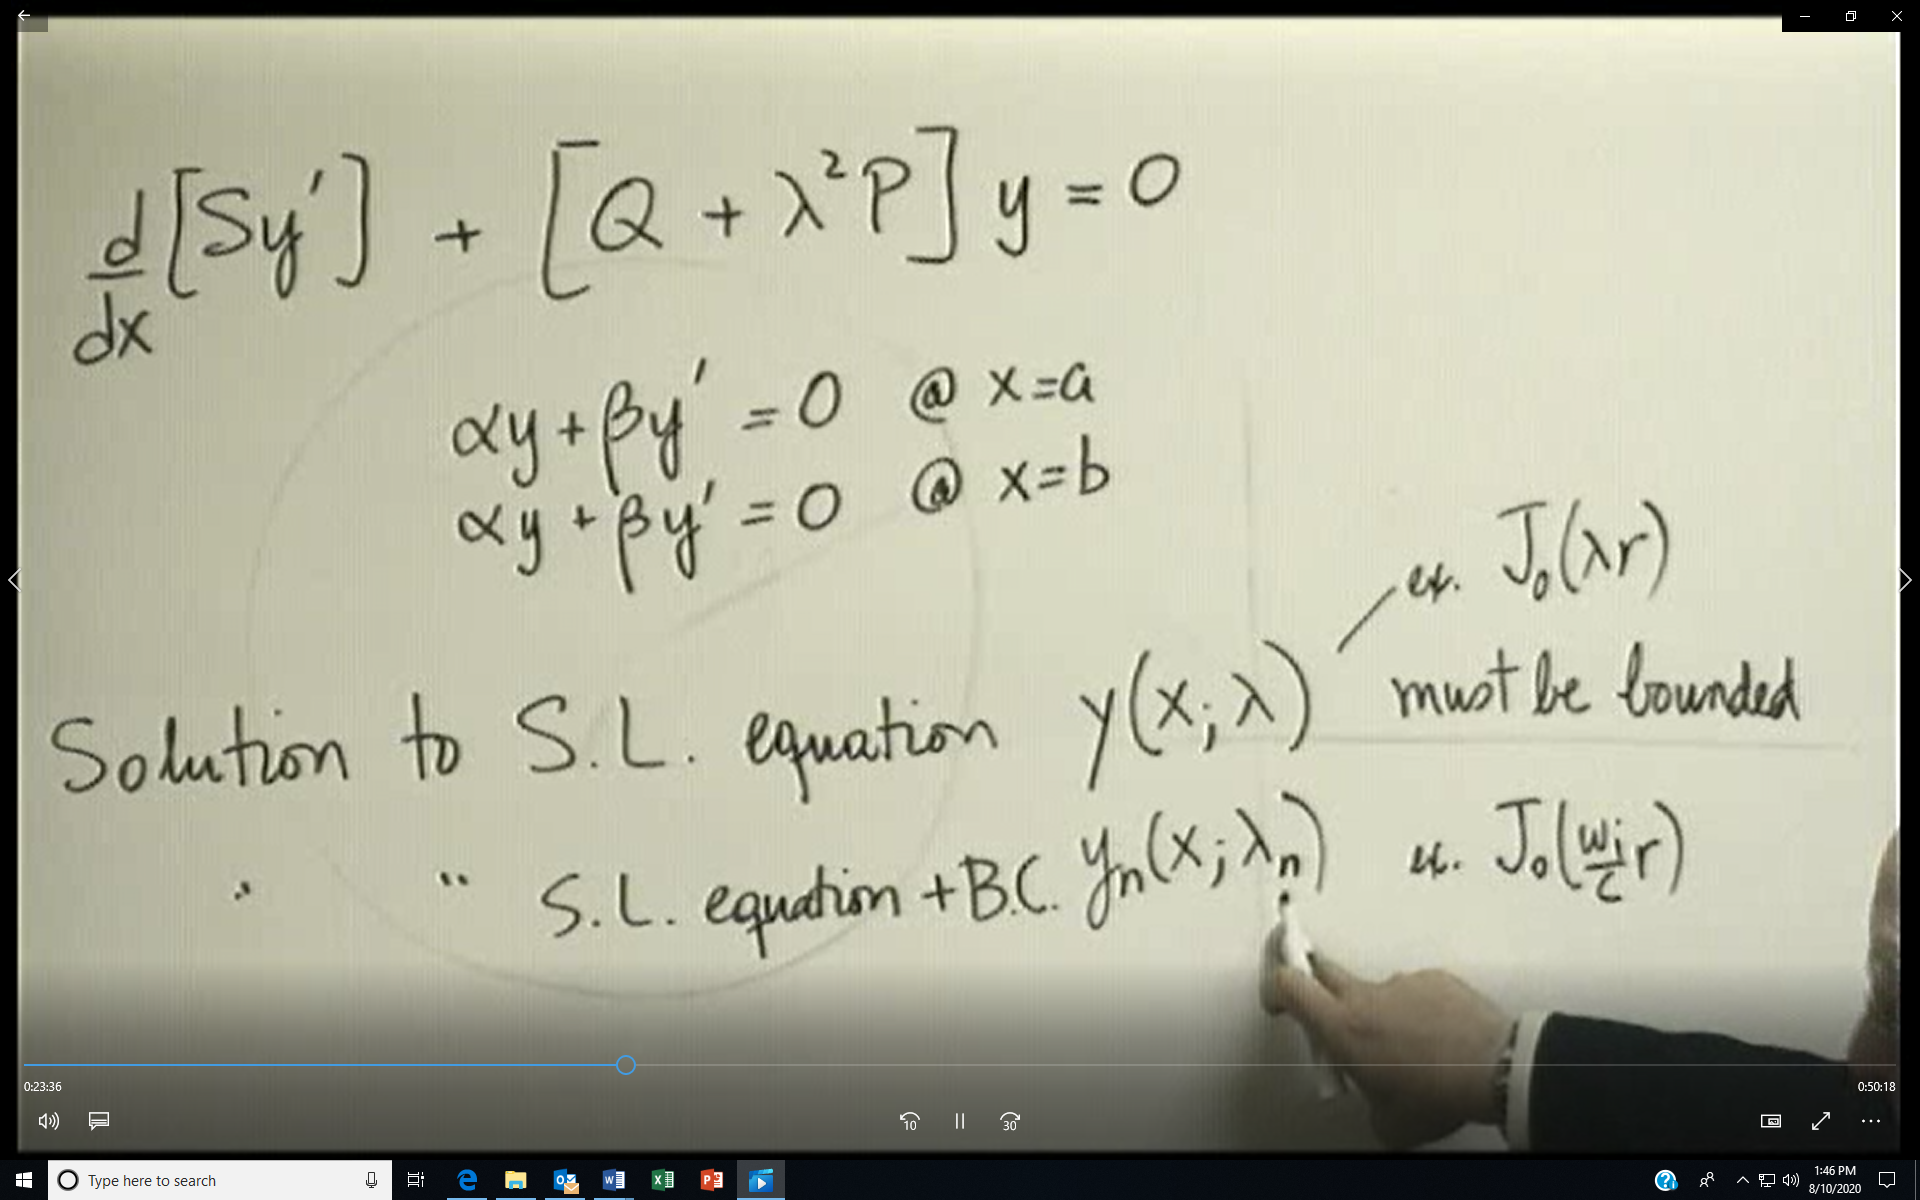 d/dx [Sy'] + [Q + λ²P] y = 0
αy + βy' = 0 @ x=a
αy + βy' = 0 @ x=b
ex. J₀(λr)
Solution to S.L. equation y(x; λ) must be bounded
" " S.L. equation + B.C. yₙ(x; λₙ) ex. J₀(ωᵢ/c r)
0:23:36
0:50:18
10
30
Type here to search
1:46 PM
8/10/2020